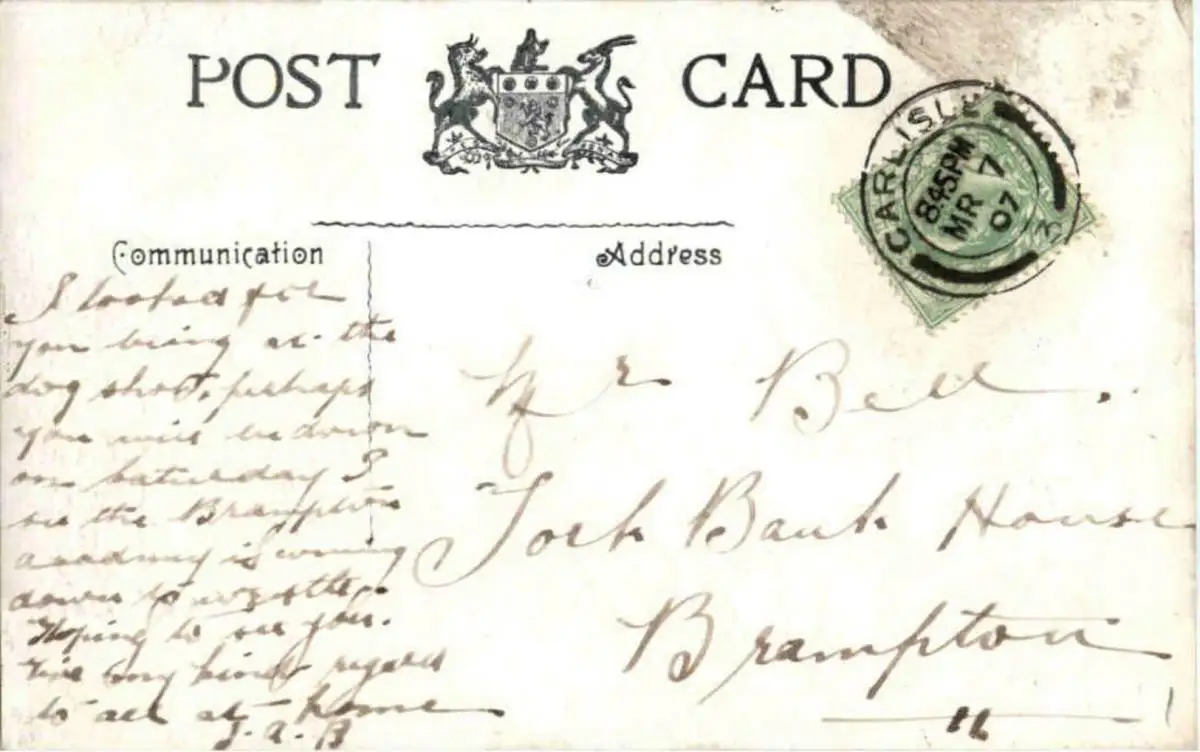 POST CARD
CARLISLE
845PM
MR 7
07
3
Communication
Address
I looked for
you being at the
dog show, perhaps
you will be down
on Saturday I
see the Brampton
academy is coming
down to wrestle.
Hoping to see you.
Give my kind regards
to all at home
J. A. B
Mr Bell.
Bank House
Brampton